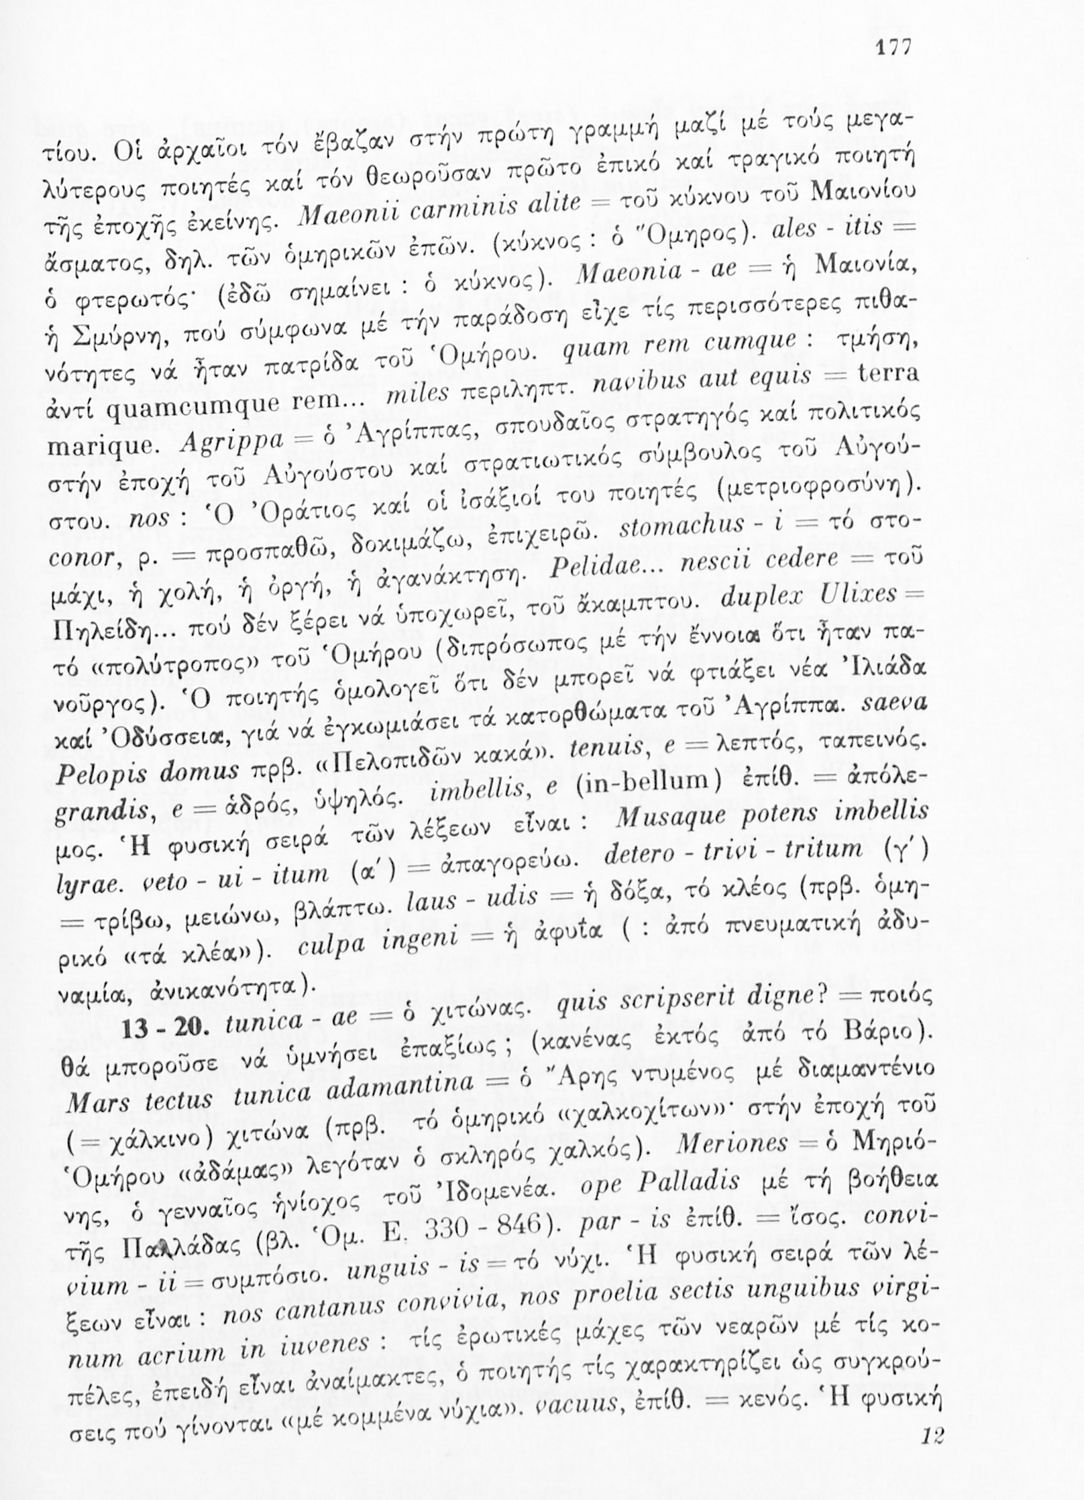 177
τίου. Οἱ ἀρχαῖοι τόν ἔβαζαν στήν πρώτη γραμμή μαζί μέ τούς μεγα-
λύτερους ποιητές καί τόν θεωροῦσαν πρῶτο ἐπικό καί τραγικό ποιητή
τῆς ἐποχῆς ἐκείνης. Maeonii carminis alite = τοῦ κύκνου τοῦ Μαιονίου
ἄσματος, δηλ. τῶν ὁμηρικῶν ἐπῶν. (κύκνος : ὁ Ὅμηρος). ales - itis =
ὁ φτερωτός· (ἐδῶ σημαίνει : ὁ κύκνος). Maeonia - ae = ἡ Μαιονία,
ἡ Σμύρνη, πού σύμφωνα μέ τήν παράδοση εἶχε τίς περισσότερες πιθα-
νότητες νά ἦταν πατρίδα τοῦ Ὁμήρου. quam rem cumque : τμήση,
ἀντί quamcumque rem... miles περιληπτ. navibus aut equis = terra
marique. Agrippa = ὁ Ἀγρίππας, σπουδαῖος στρατηγός καί πολιτικός
στήν ἐποχή τοῦ Αὐγούστου καί στρατιωτικός σύμβουλος τοῦ Αὐγού-
στου. nos : Ὁ Ὁράτιος καί οἱ ἰσάξιοί του ποιητές (μετριοφροσύνη).
conor, ρ. = προσπαθῶ, δοκιμάζω, ἐπιχειρῶ. stomachus - i = τό στο-
μάχι, ἡ χολή, ἡ ὀργή, ἡ ἀγανάκτηση. Pelidae... nescii cedere = τοῦ
Πηλείδη... πού δέν ξέρει νά ὑποχωρεῖ, τοῦ ἄκαμπτου. duplex Ulixes =
τό «πολύτροπος» τοῦ Ὁμήρου (διπρόσωπος μέ τήν ἔννοια ὅτι ἦταν πα-
νοῦργος). Ὁ ποιητής ὁμολογεῖ ὅτι δέν μπορεῖ νά φτιάξει νέα Ἰλιάδα
καί Ὀδύσσεια, γιά νά ἐγκωμιάσει τά κατορθώματα τοῦ Ἀγρίππα. saeva
Pelopis domus πρβ. «Πελοπιδῶν κακά». tenuis, e = λεπτός, ταπεινός.
grandis, e = ἁδρός, ὑψηλός. imbellis, e (in-bellum) ἐπίθ. = ἀπόλε-
μος. Ἡ φυσική σειρά τῶν λέξεων εἶναι : Musaque potens imbellis
lyrae. veto - ui - itum (α΄) = ἀπαγορεύω. detero - trivi - tritum (γ΄)
= τρίβω, μειώνω, βλάπτω. laus - udis = ἡ δόξα, τό κλέος (πρβ. ὁμη-
ρικό «τά κλέα»). culpa ingeni = ἡ ἀφυΐα ( : ἀπό πνευματική ἀδυ-
ναμία, ἀνικανότητα).
13 - 20. tunica - ae = ὁ χιτώνας. quis scripserit digne? = ποιός
θά μποροῦσε νά ὑμνήσει ἐπαξίως ; (κανένας ἐκτός ἀπό τό Βάριο).
Mars tectus tunica adamantina = ὁ Ἄρης ντυμένος μέ διαμαντένιο
(= χάλκινο) χιτώνα (πρβ. τό ὁμηρικό «χαλκοχίτων»· στήν ἐποχή τοῦ
Ὁμήρου «ἀδάμας» λεγόταν ὁ σκληρός χαλκός). Meriones = ὁ Μηριό-
νης, ὁ γενναῖος ἡνίοχος τοῦ Ἰδομενέα. ope Palladis μέ τή βοήθεια
τῆς Παλλάδας (βλ. Ὁμ. Ε. 330 - 846). par - is ἐπίθ. = ἴσος. convi-
vium - ii = συμπόσιο. unguis - is = τό νύχι. Ἡ φυσική σειρά τῶν λέ-
ξεων εἶναι : nos cantanus convivia, nos proelia sectis unguibus virgi-
num acrium in iuvenes : τίς ἐρωτικές μάχες τῶν νεαρῶν μέ τίς κο-
πέλες, ἐπειδή εἶναι ἀναίμακτες, ὁ ποιητής τίς χαρακτηρίζει ὡς συγκρού-
σεις πού γίνονται «μέ κομμένα νύχια». vacuus, ἐπίθ. = κενός. Ἡ φυσική
12